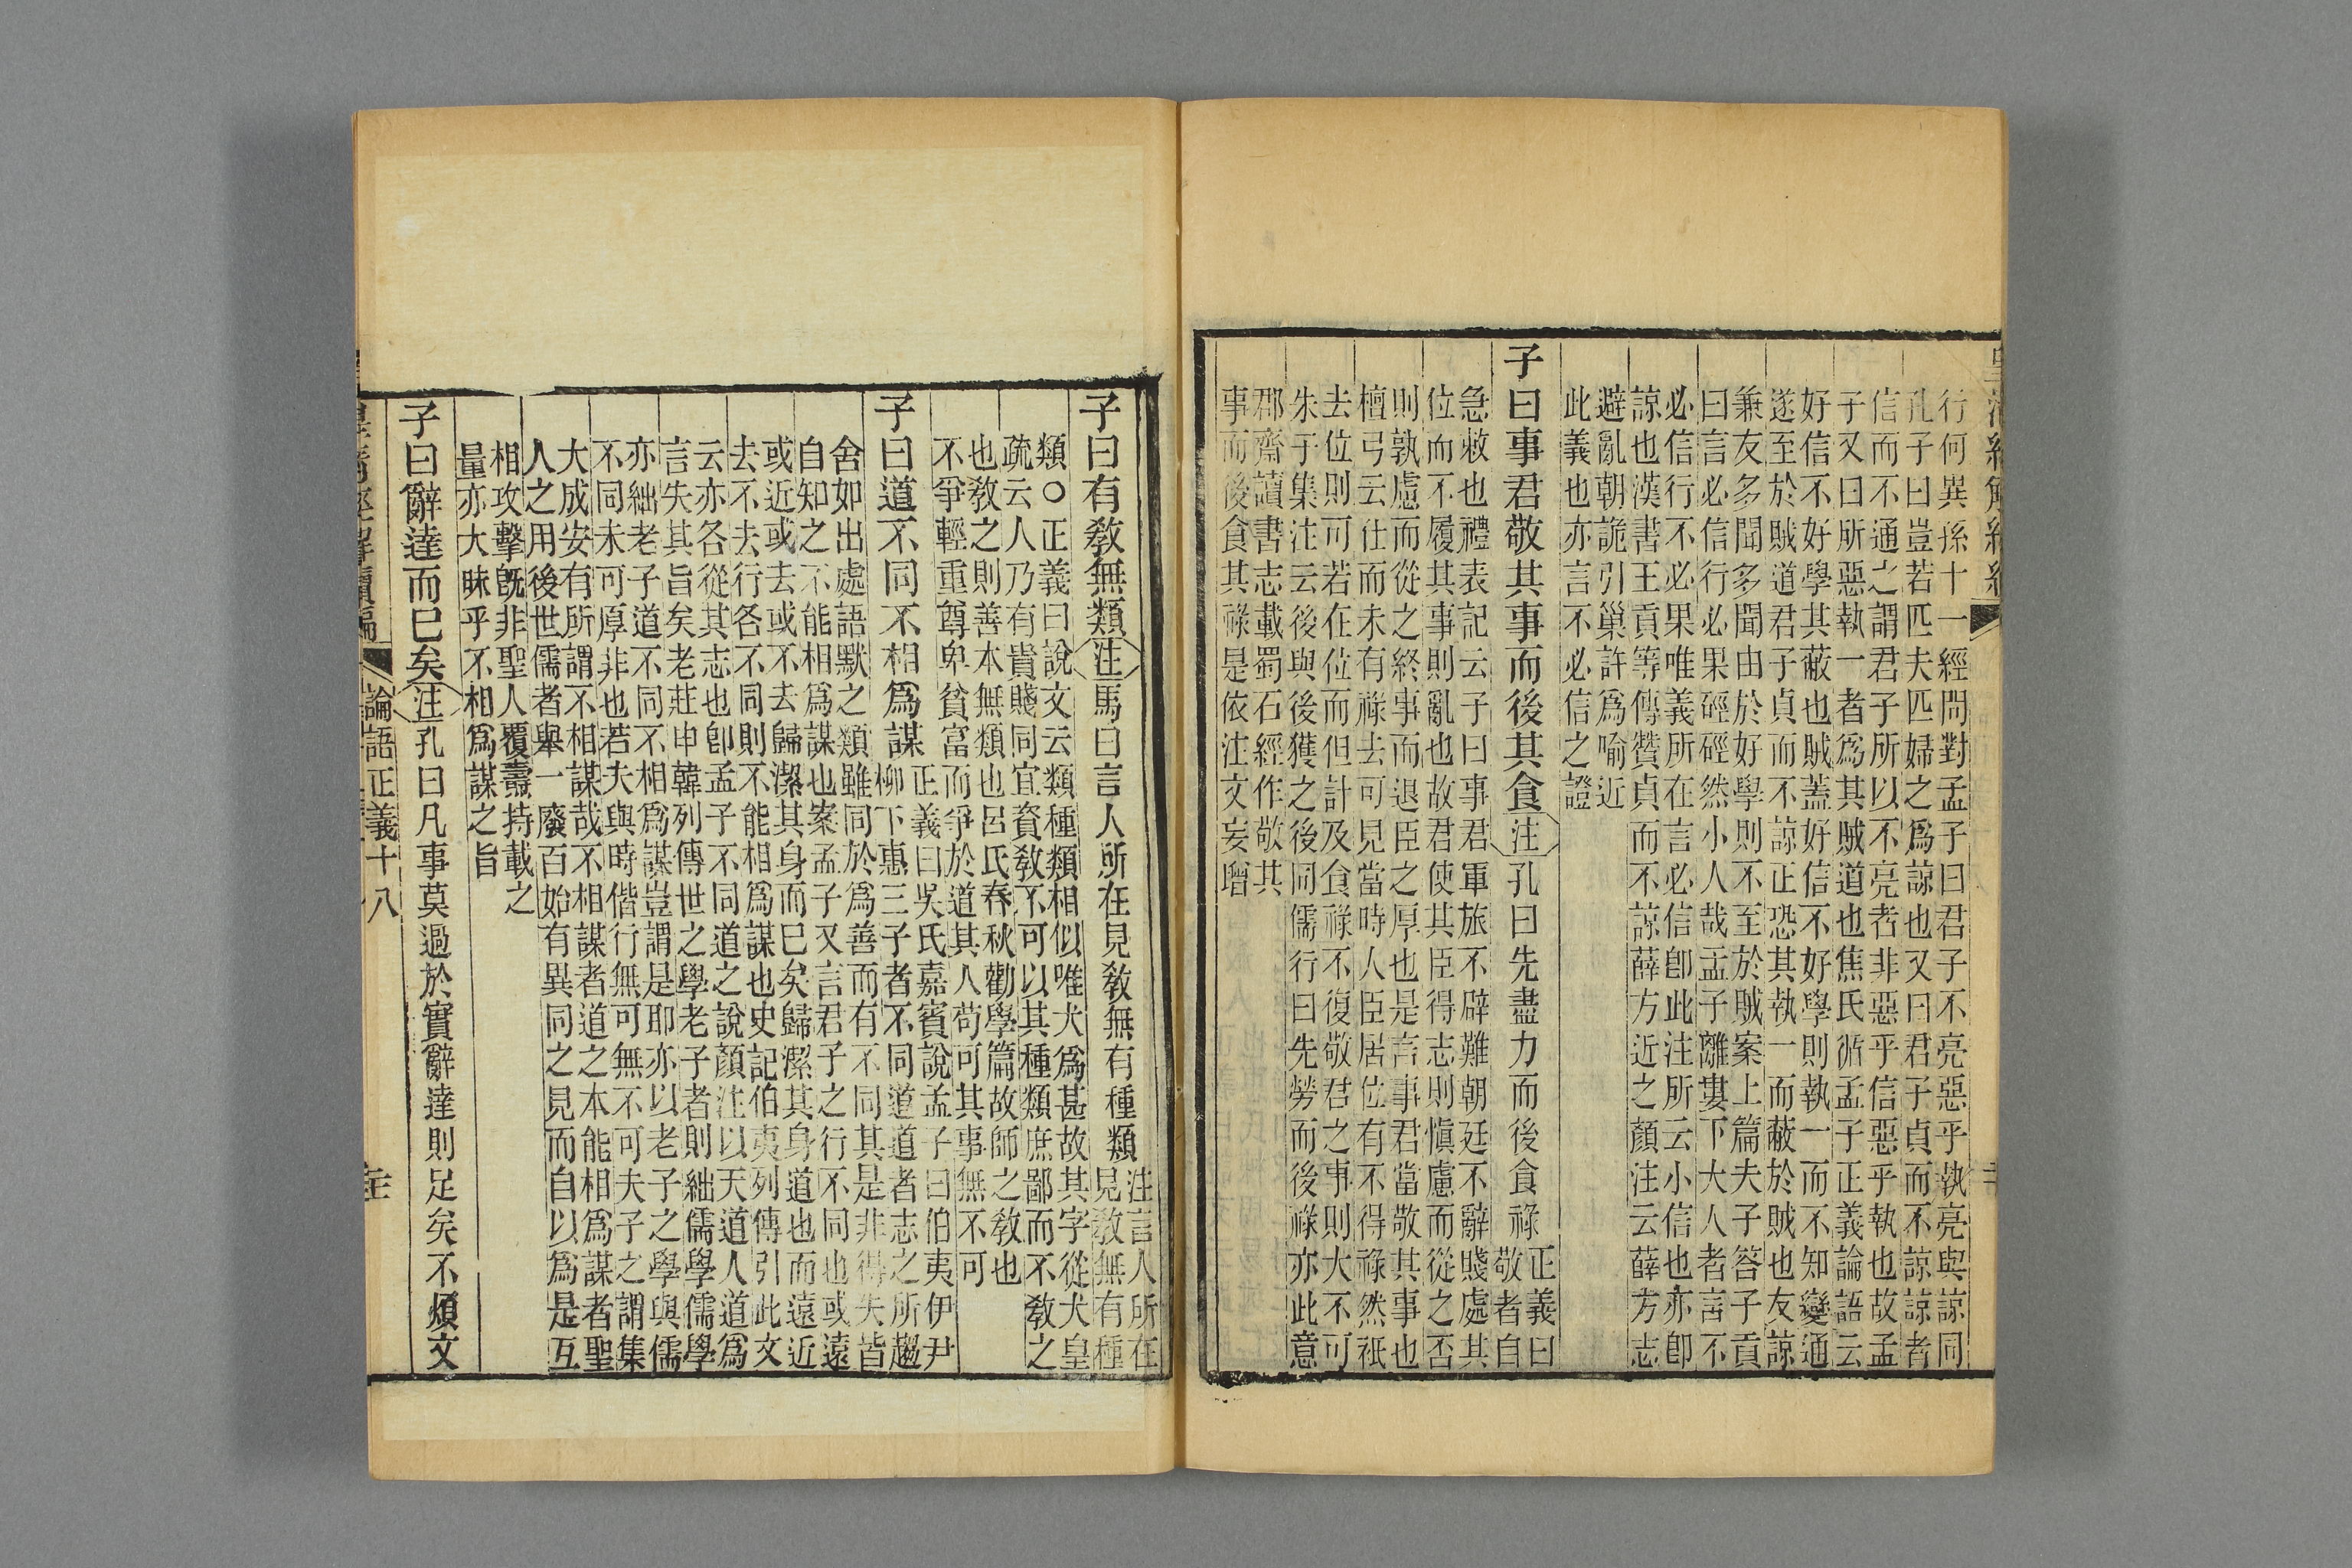 行何異孫十一經問對孟子曰君子不亮惡乎執亮與諒同
孔子曰豈若匹夫匹婦之爲諒也又曰君子貞而不諒諒者
信而不通之謂君子所以不亮者非惡乎信惡乎執也故孟
子又曰所惡執一者爲其賊道也焦氏循孟子正義論語云
好信不好學其蔽也賊蓋好信不好學則執一而不知變通
遂至於賊道君子貞而不諒正恐其執一而蔽於賊也友諒
兼友多聞多聞由於好學則不至於賊案上篇夫子答子貢
曰言必信行必果硜硜然小人哉孟子離婁下大人者言不
必信行不必果唯義所在言必信卽此注所云小信也亦卽
諒也漢書王貢等傳贊貞而不諒薛方近之顏注云薛方志
避亂朝詭引巢許爲喻近
此義也亦言不必信之證
子曰事君敬其事而後其食注孔曰先盡力而後食祿
正義曰
敬者自
急敕也禮表記云子曰事君軍旅不辟難朝廷不辭賤處其
位而不履其事則亂也故君使其臣得志則愼慮而從之否
則孰慮而從之終事而退臣之厚也是言事君當敬其事也
檀弓云仕而未有祿去可見當時人臣居位有不得祿然衹
去位則可若在位而但計及食祿不復敬君之事則大不可
朱子集注云後與後獲之後同儒行曰先勞而後祿亦此意
郡齋讀書志載蜀石經作敬其
事而後食其祿是依注文妄增
子曰有敎無類注馬曰言人所在見敎無有種類
注言人所在
見敎無有種
類○正義曰說文云類種類相似唯犬爲甚故其字從犬皇
疏云人乃有貴賤同宜資敎不可以其種類庶鄙而不敎之
也敎之則善本無類也呂氏春秋勸學篇故師之敎也
不爭輕重尊卑貧富而爭於道其人苟可其事無不可
子曰道不同不相爲謀
正義曰吳氏嘉賓說孟子曰伯夷伊尹
柳下惠三子者不同道道者志之所趨
舍如出處語默之類雖同於爲善而有不同其是非得失皆
自知之不能相爲謀也案孟子又言君子之行不同也或遠
或近或去或不去歸潔其身而已矣歸潔其身道也而遠近
去不去行各不同則不能相爲謀也史記伯夷列傳引此文
云亦各從其志也卽孟子不同道之說顏注以天道人道爲
言失其旨矣老莊申韓列傳世之學老子者則絀儒學儒學
亦絀老子道不同不相爲謀豈謂是耶亦以老子之學與儒
不同未可厚非也若夫與時偕行無可無不可夫子之謂集
大成安有所謂不相謀哉不相謀者道之本能相爲謀者聖
人之用後世儒者舉一廢百始有異同之見而自以爲是互
相攻擊旣非聖人覆燾持載之
量亦大昧乎不相爲謀之旨
子曰辭達而已矣注孔曰凡事莫過於實辭達則足矣不煩文
論語正義十八